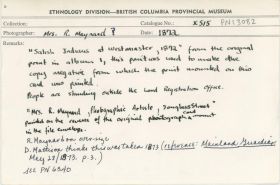 ETHNOLOGY DIVISION—BRITISH COLUMBIA PROVINCIAL MUSEUM
Collection: Catalogue No.: X 515 PN13082
Photographer: Mrs. R. Maynard ? Date: 1872
Remarks:
"Salish Indians at Westminster, 1872" from the original
print in album 1, this print was used to make the
copy negative from which the print mounted on this
card was printed
People are standing outside the Land Registration Office.
"Mrs. R. Maynard, Photographic Artiste, Douglas Street" card
printed on the reverse of the original photograph mount
in the file envelope.
R. Maynard box over-size
D. Mattison thinks this was taken 1873 (reference: Mainland Guardian
May 28/1873. p. 3.)
SEE PN 6340